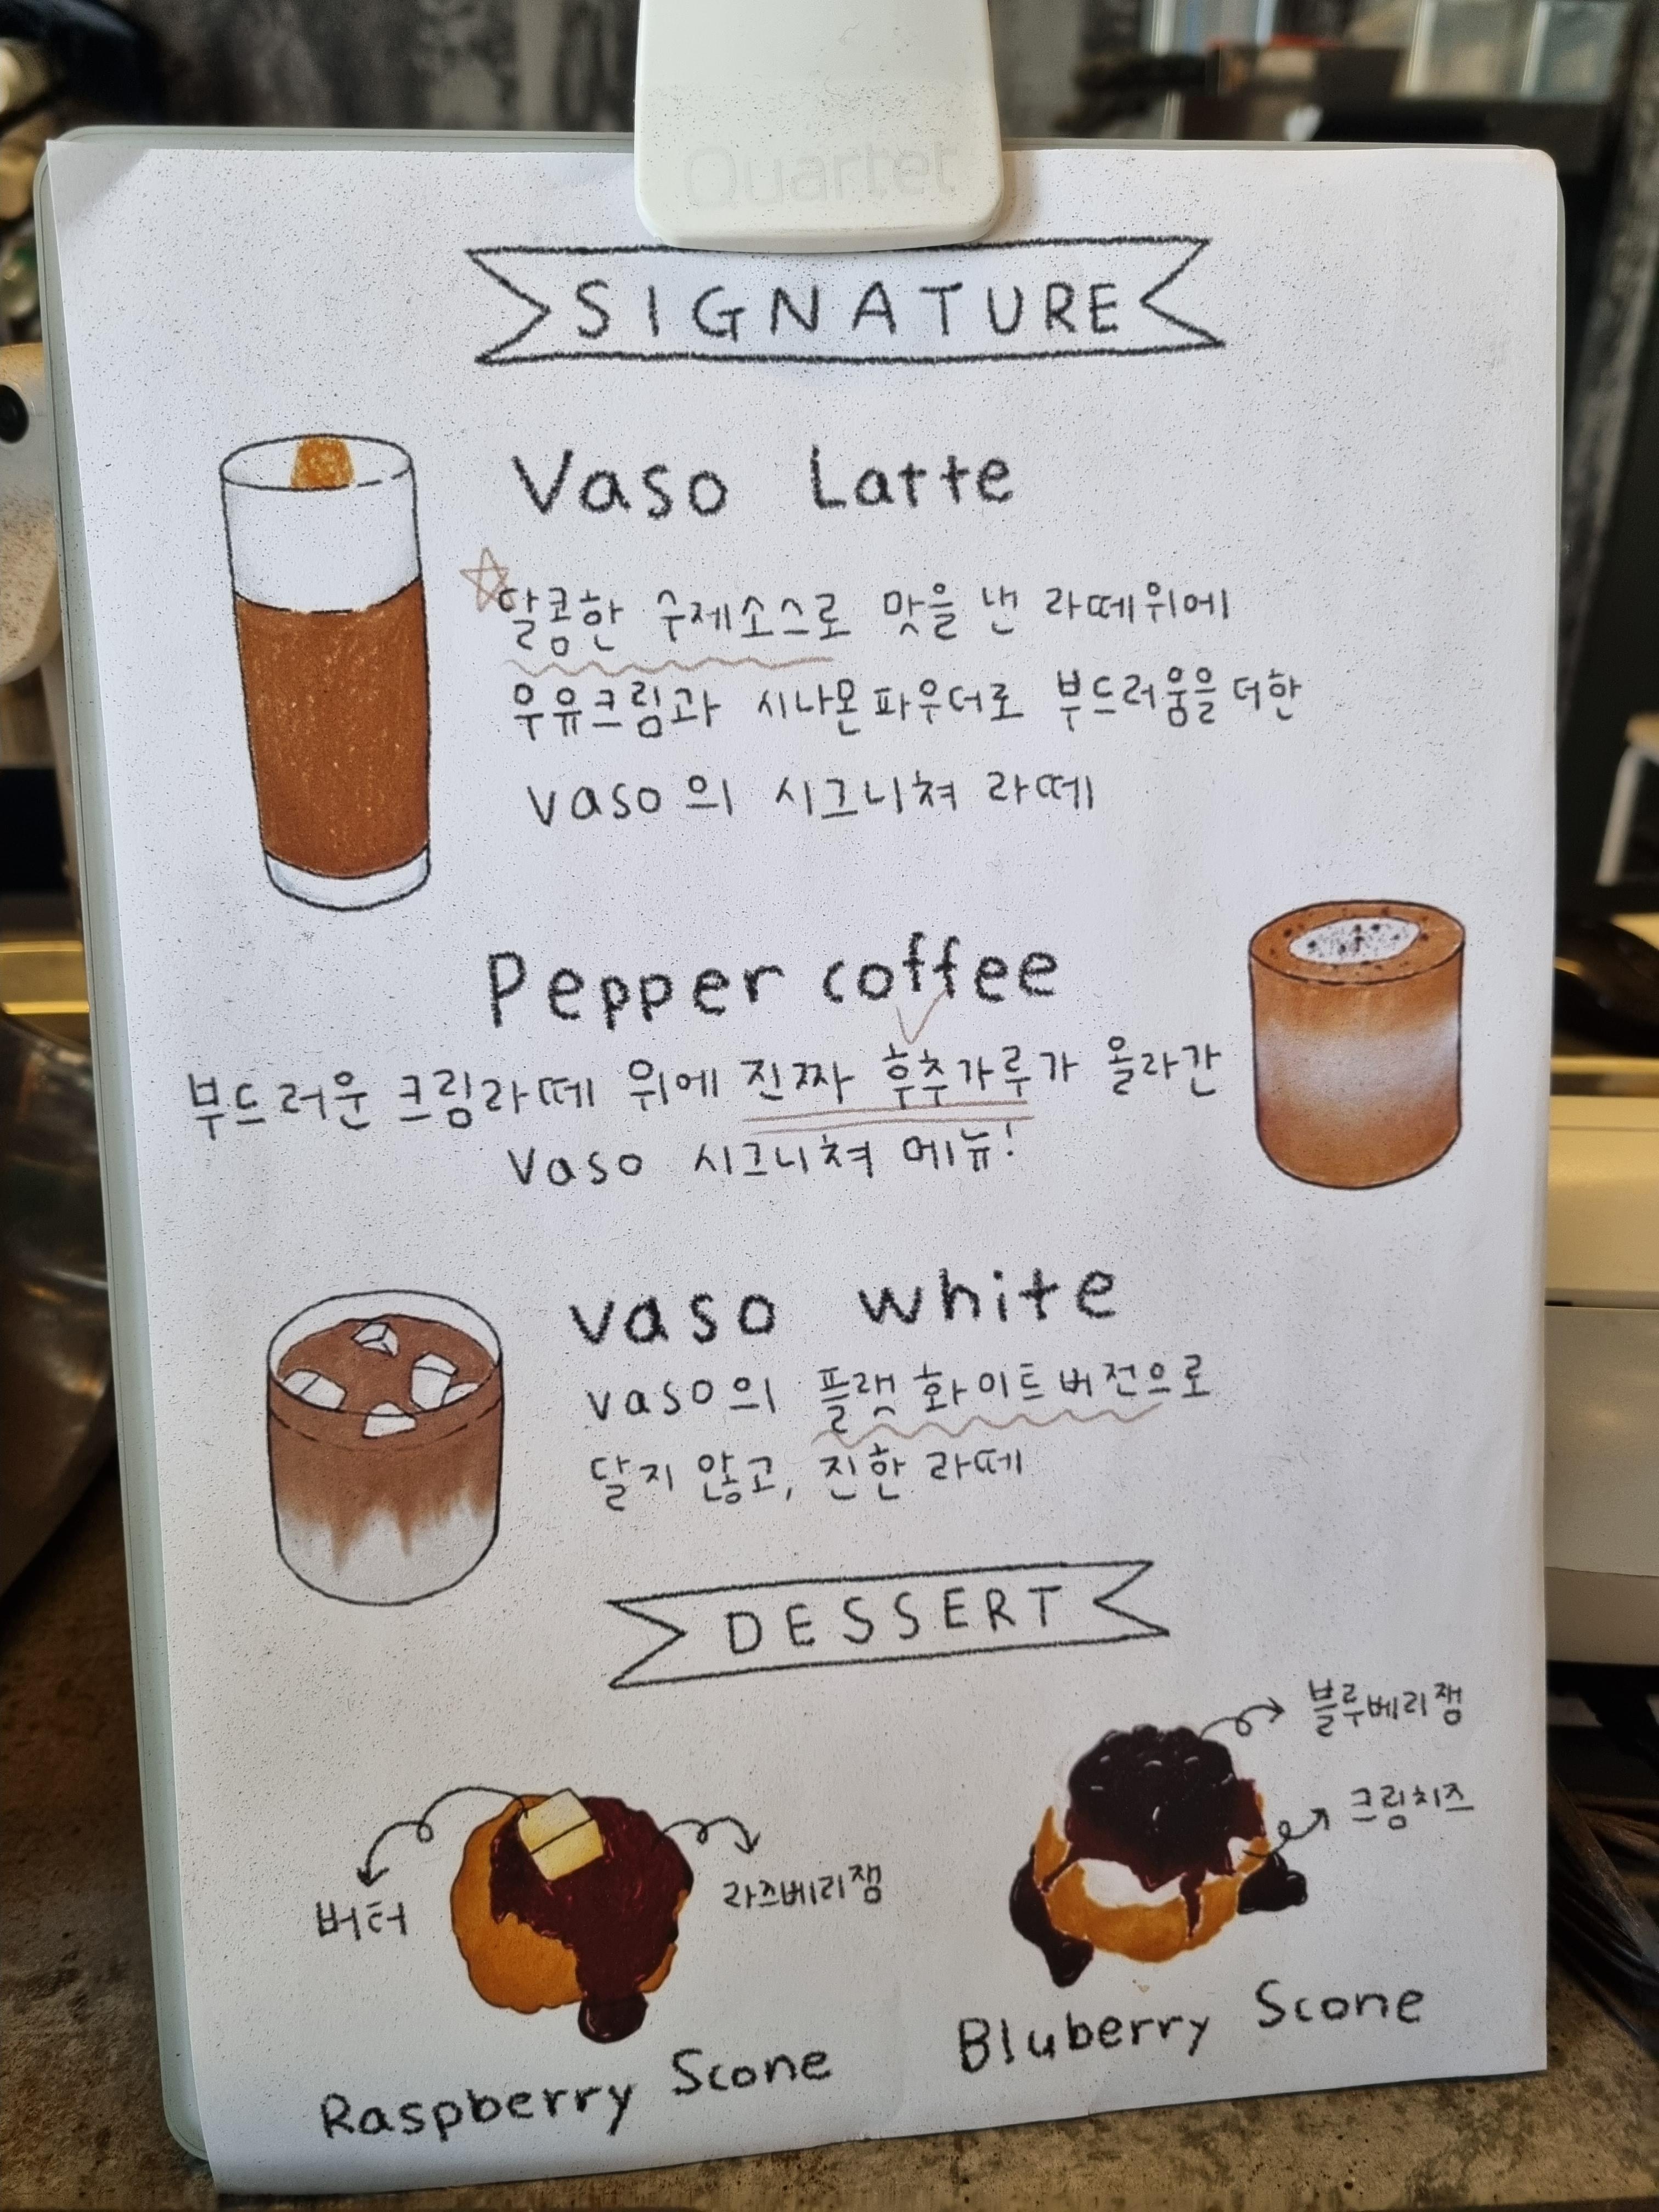 Quartet
SIGNATURE
Vaso Latte
달콤한 수제소스로 맛을 낸 라떼위에
우유크림과 시나몬파우더로 부드러움을 더한
vaso의 시그니쳐 라떼
Pepper coffee
부드러운 크림라떼 위에 진짜 후추가루가 올라간
Vaso 시그니쳐 메뉴!
vaso white
vaso의 플랫 화이트버전으로
달지 않고, 진한 라떼
DESSERT
블루베리잼
크림치즈
버터
라즈베리잼
Raspberry Scone
Bluberry Scone